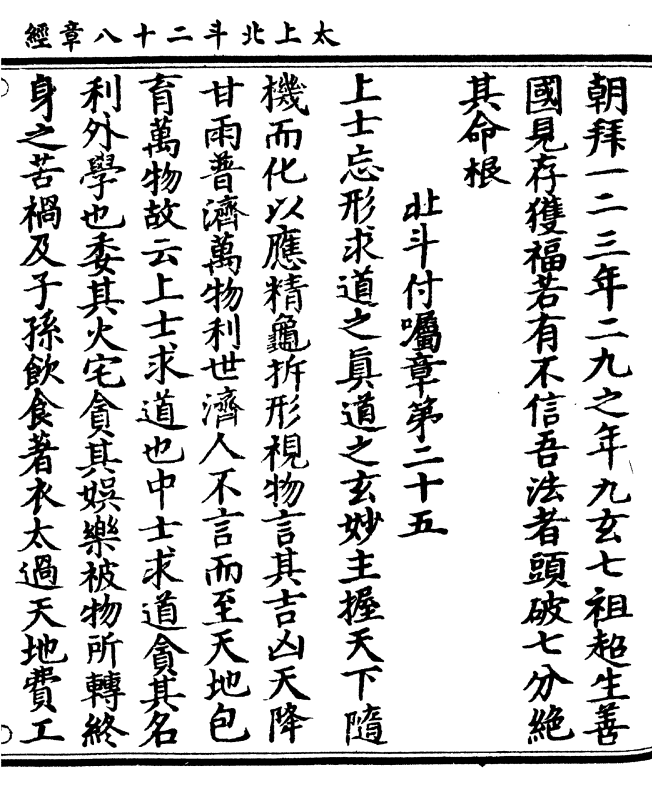 太上北斗二十八章經
朝拜一二三年二九之年九玄七祖超生善
國見存獲福若有不信吾法者頭破七分絶
其命根
北斗付囑章第二十五
上士忘形求道之眞道之玄妙主握天下隨
機而化以應精龜拆形視物言其吉凶天降
甘雨普濟萬物利世濟人不言而至天地包
育萬物故云上士求道也中士求道貪其名
利外學也委其火宅貪其娯樂被物所轉終
身之苦禍及子孫飲食著衣太過天地費工